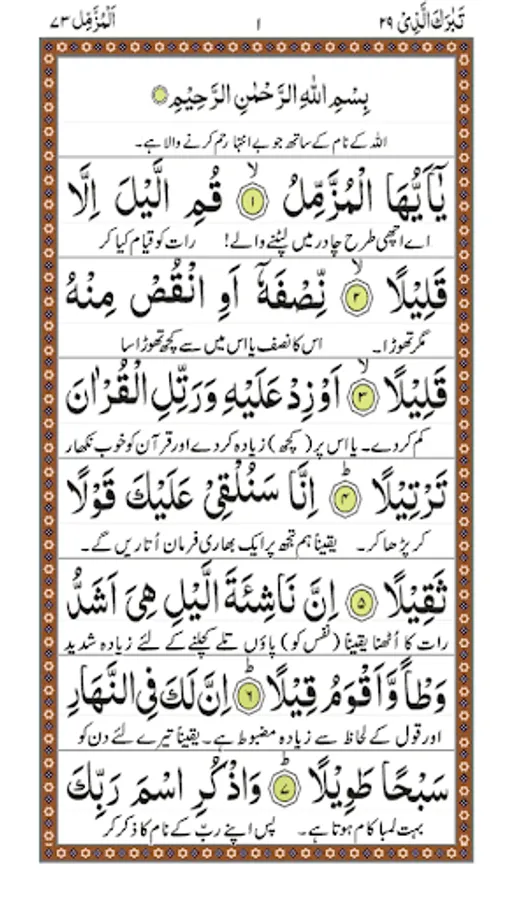 تَبٰرَكَ الَّذِیْ ۲۹ ۱ اَلْمُزَّمِّل ۷۳
بِسْمِ اللّٰهِ الرَّحْمٰنِ الرَّحِیْمِ ۝۱
اللہ کے نام کے ساتھ جو بے انتہا رحم کرنے والا ہے۔
یٰۤاَیُّهَا الْمُزَّمِّلُ ۙ۝۱ قُمِ الَّیْلَ اِلَّا
اے اچھی طرح چادر میں لپٹنے والے! رات کو قیام کیا کر
قَلِیْلًا ۙ۝۲ نِّصْفَهٗۤ اَوِ انْقُصْ مِنْهُ
مگر تھوڑا۔ اس کا نصف یا اس میں سے کچھ تھوڑا سا
قَلِیْلًا ۙ۝۳ اَوْ زِدْ عَلَیْهِ وَ رَتِّلِ الْقُرْاٰنَ
کم کردے۔ یا اس پر (کچھ) زیادہ کردے اور قرآن کو خوب نکھار
تَرْتِیْلًا ؕ۝۴ اِنَّا سَنُلْقِیْ عَلَیْكَ قَوْلًا
کر پڑھا کر۔ یقیناً ہم تجھ پر ایک بھاری فرمان اُتاریں گے۔
ثَقِیْلًا ۝۵ اِنَّ نَاشِئَةَ الَّیْلِ هِیَ اَشَدُّ
رات کا اُٹھنا یقیناً (نفس کو) پاؤں تلے کچلنے کے لئے زیادہ شدید
وَطْاً وَّ اَقْوَمُ قِیْلًا ؕ۝۶ اِنَّ لَكَ فِی النَّهَارِ
اور قول کے لحاظ سے زیادہ مضبوط ہے۔ یقیناً تیرے لئے دن کو
سَبْحًا طَوِیْلًا ؕ۝۷ وَ اذْكُرِ اسْمَ رَبِّكَ
بہت لمبا کام ہوتا ہے۔ پس اپنے ربّ کے نام کا ذکر کر